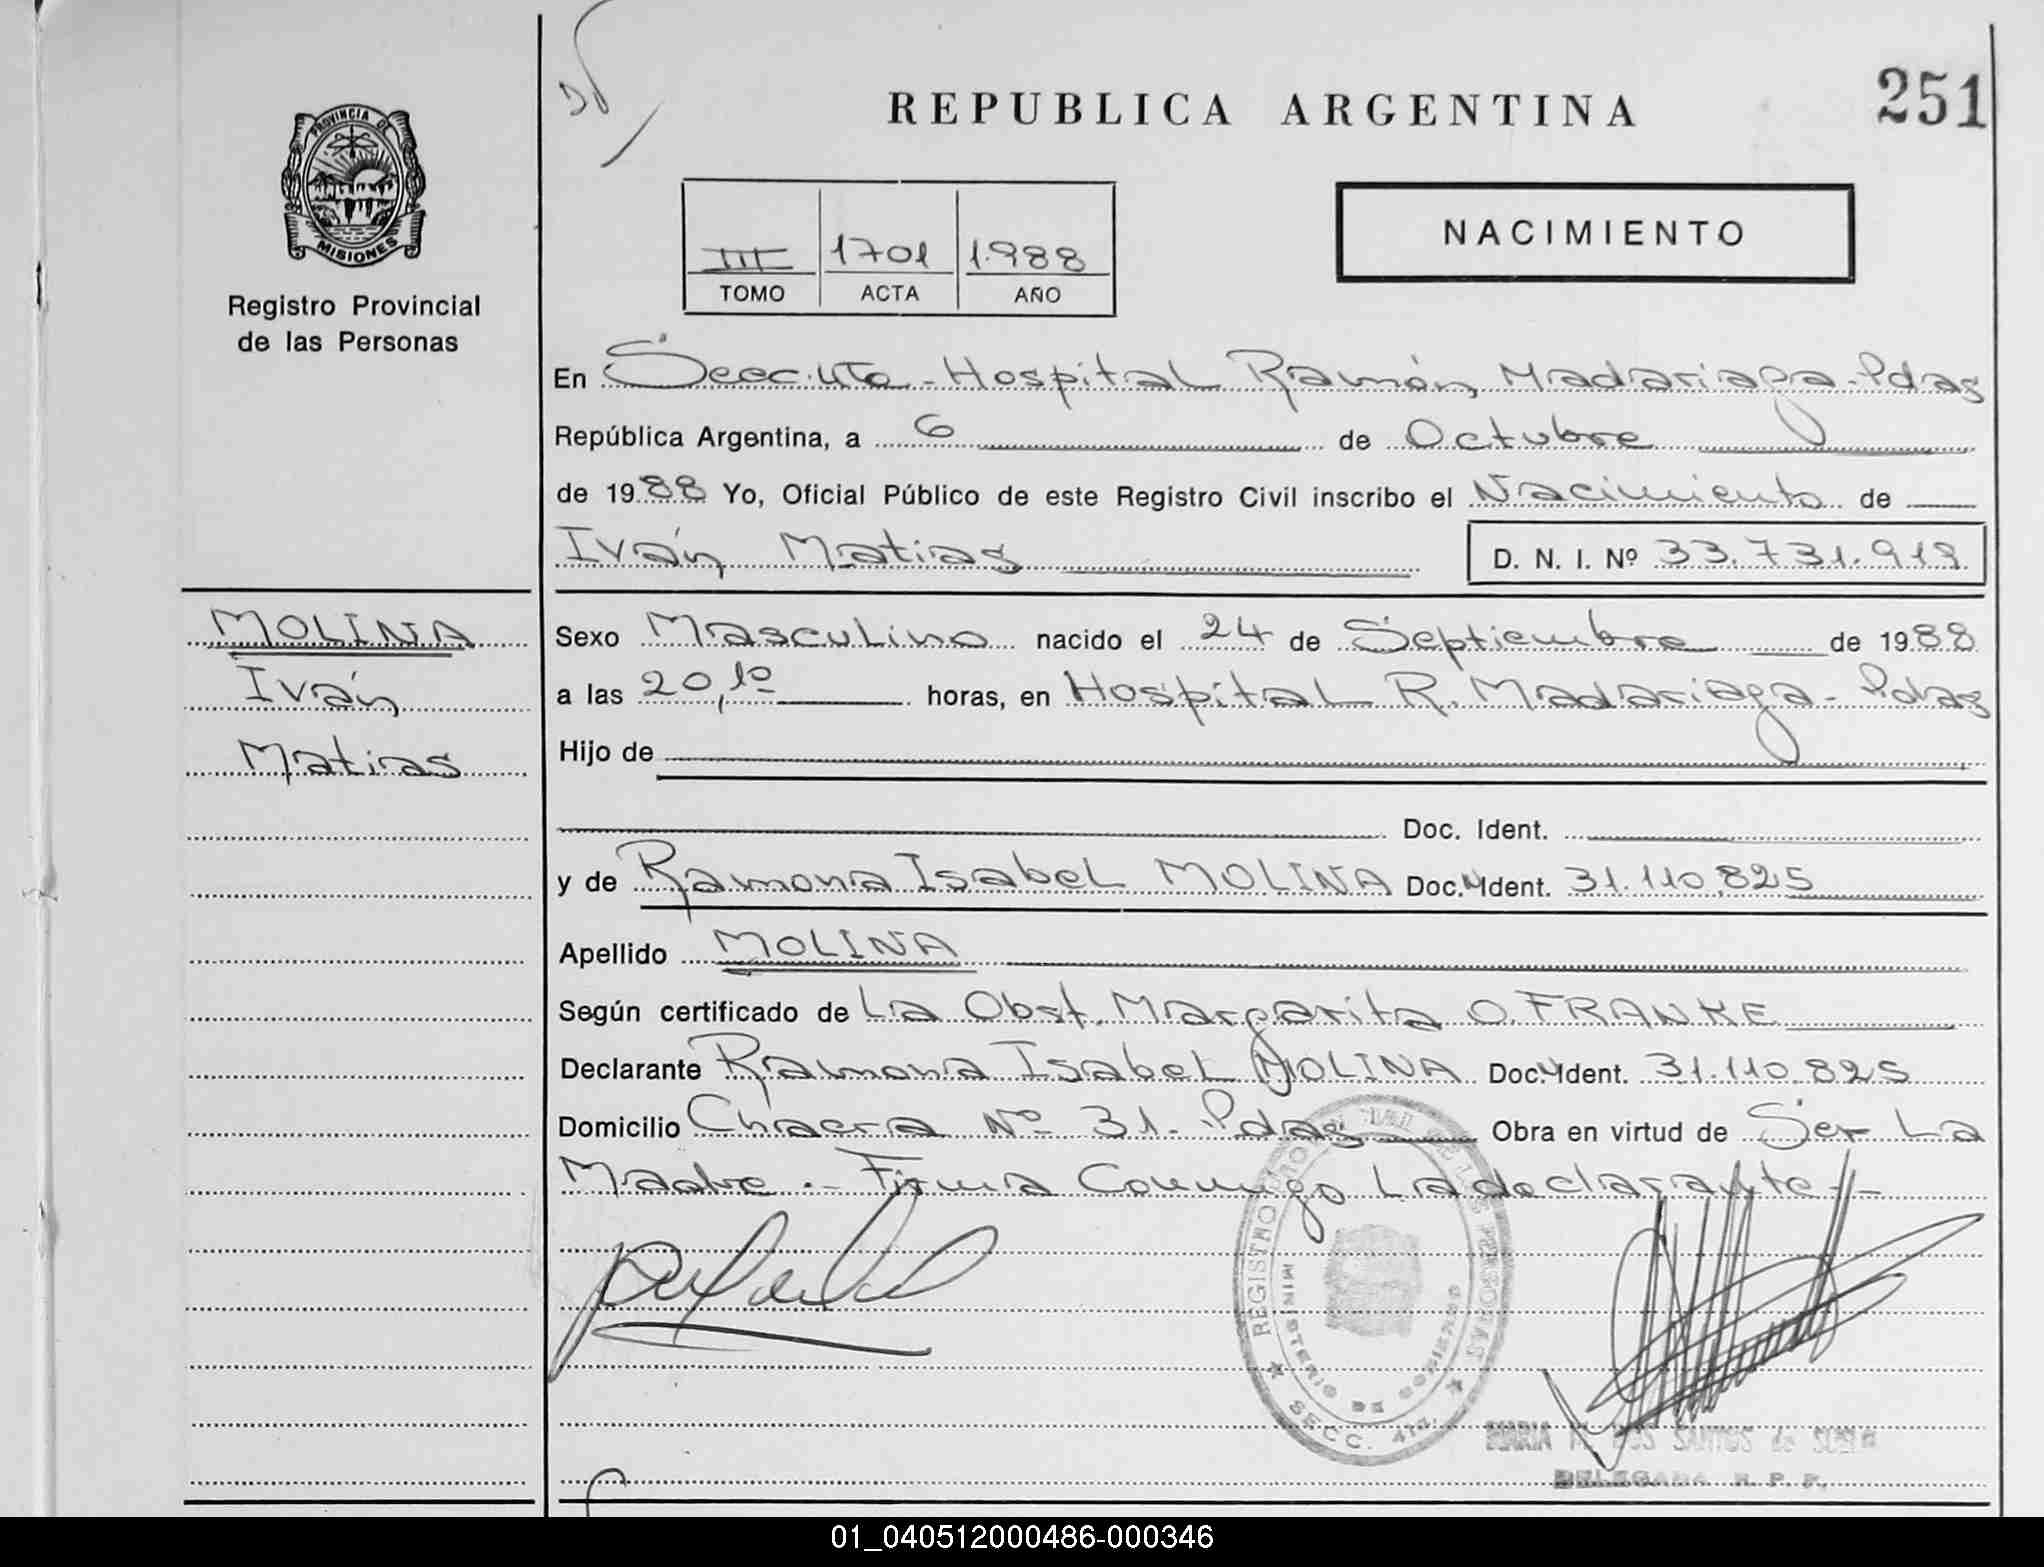 REPUBLICA ARGENTINA
251
PROVINCIA DE
MISIONES
Registro Provincial
de las Personas
III 1701 1.988
TOMO ACTA AÑO
NACIMIENTO
En Secc. 4ta - Hospital Ramón Madariaga - Pdas
República Argentina, a 6 de Octubre
de 1988 Yo, Oficial Público de este Registro Civil inscribo el Nacimiento de
Iván Matias D. N. I. Nº 33.731.919
MOLINA
Iván
Matias
Sexo Masculino nacido el 24 de Septiembre de 1988
a las 20,10 horas, en Hospital R. Madariaga - Pdas
Hijo de
Doc. Ident.
y de Ramona Isabel MOLINA Doc. Ident. 31.110.825
Apellido MOLINA
Según certificado de La Obst. Margarita O. FRANKE
Declarante Ramona Isabel MOLINA Doc. Ident. 31.110.825
Domicilio Chacra Nº 31. Pdas Obra en virtud de Ser La
Madre.- Firma Conmigo La declarante.-
REGISTRO DE LAS PERSONAS
MINISTERIO DE
SECC. 4ta.
MARIA DOS SANTOS de
DELEGADA R. P. P.
01_040512000486-000346